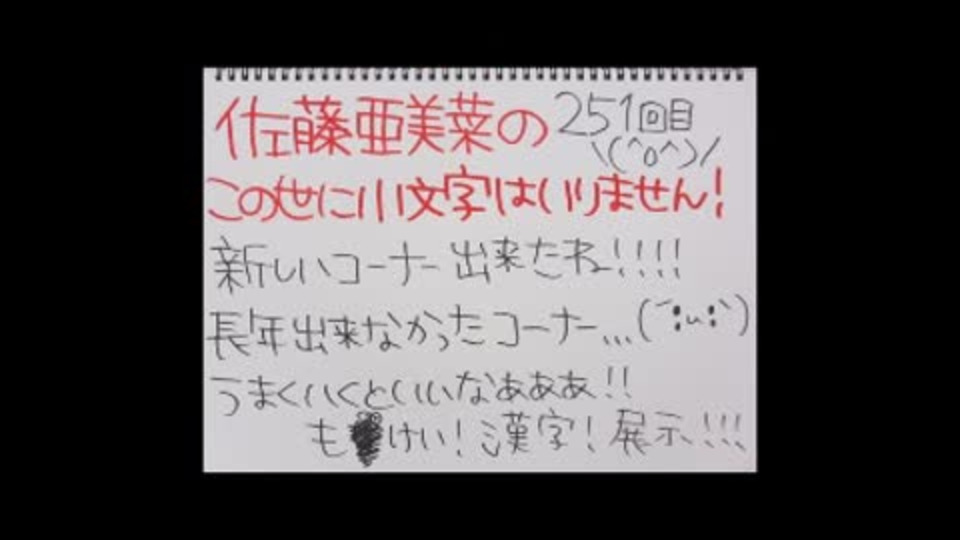 佐藤亜美菜の 251回目
\(^o^)/
この世に小文字はいりません!
新しいコーナー出来たね!!!!
長年出来なかったコーナー...(´;u;`)
うまくいくといいなぁぁぁ!!
も けい!漢字!展示!!!